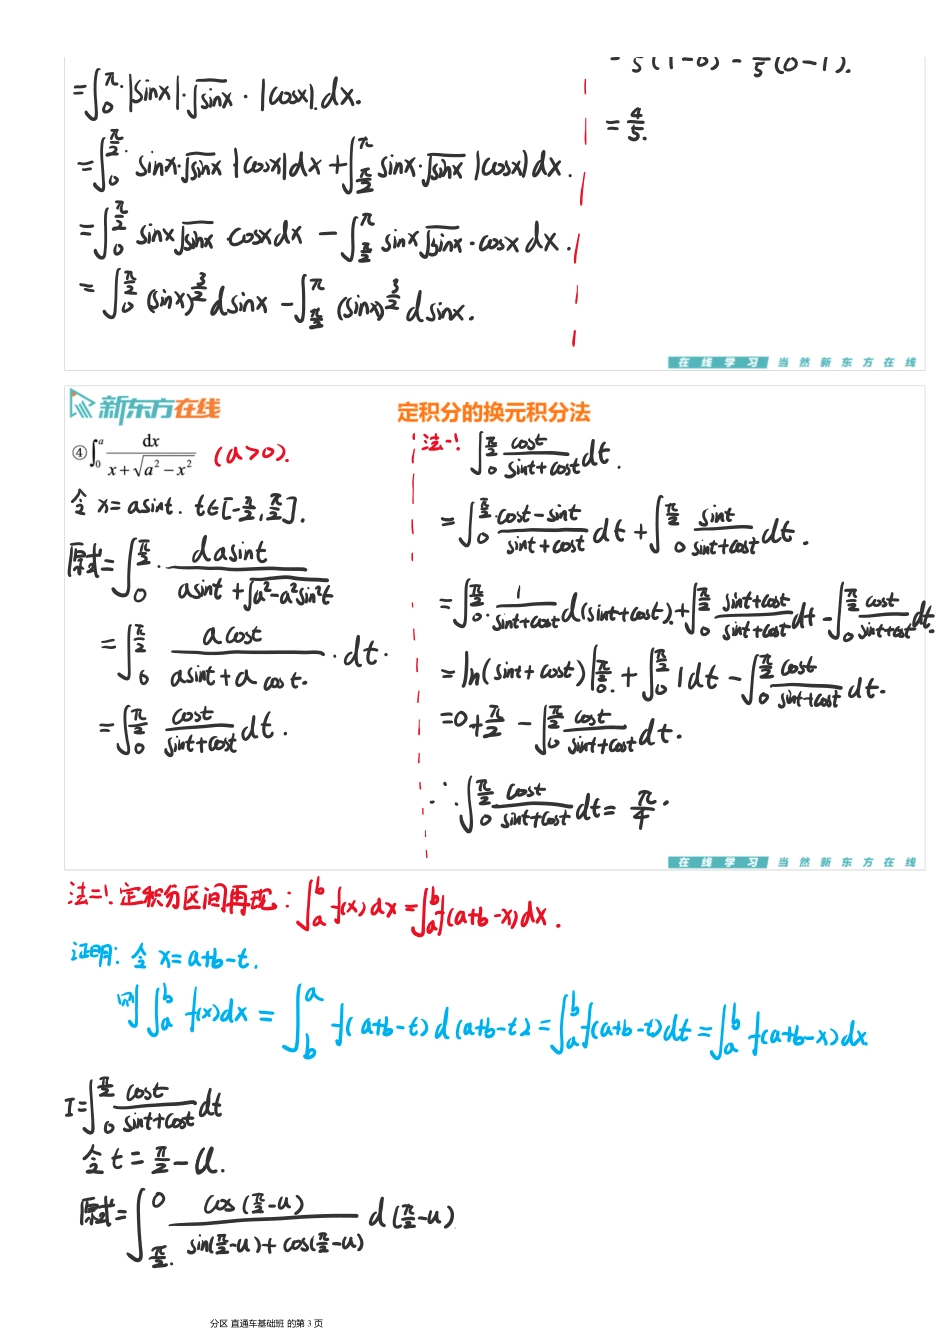 = ∫₀^π |sinx|·√sinx · |cosx| dx.
= ∫₀^{π/2} sinx·√sinx |cosx|dx + ∫_{π/2}^π sinx·√sinx |cosx|dx.
= ∫₀^{π/2} sinx√sinx·cosxdx - ∫_{π/2}^π sinx√sinx·cosx dx.
= ∫₀^{π/2} (sinx)^{3/2} dsinx - ∫_{π/2}^π (sinx)^{3/2} dsinx.
(1-0) - (0-1).
= 4/5.
在线学习 当然新东方在线
新东方在线
定积分的换元积分法
④ ∫₀^a dx/(x+√(a²-x²)) (a>0).
令 x=asint. t∈[-π/2,π/2].
原式= ∫₀^{π/2} dasint/(asint+√(a²-a²sin²t))
= ∫₀^{π/2} acost/(asint+a cost)·dt.
= ∫₀^{π/2} cost/(sint+cost) dt.
法一: ∫₀^{π/2} cost/(sint+cost) dt.
= ∫₀^{π/2} (cost-sint)/(sint+cost) dt + ∫₀^{π/2} sint/(sint+cost) dt.
= ∫₀^{π/2} 1/(sint+cost) d(sint+cost) + ∫₀^{π/2} (sint+cost)/(sint+cost) dt - ∫₀^{π/2} cost/(sint+cost) dt.
= ln(sint+cost)|₀^{π/2} + ∫₀^{π/2} 1dt - ∫₀^{π/2} cost/(sint+cost) dt.
=0+π/2 - ∫₀^{π/2} cost/(sint+cost) dt.
∴ ∫₀^{π/2} cost/(sint+cost) dt = π/4.
在线学习 当然新东方在线
法二: 定积分区间再现: ∫_a^b f(x)dx = ∫_a^b f(a+b-x)dx.
证明: 令 x=a+b-t.
则 ∫_a^b f(x)dx = ∫_b^a f(a+b-t)d(a+b-t) = ∫_a^b f(a+b-t)dt = ∫_a^b f(a+b-x)dx
I= ∫₀^{π/2} cost/(sint+cost) dt
令 t=π/2-u.
原式= ∫_{π/2}^0 cos(π/2-u)/(sin(π/2-u)+cos(π/2-u)) d(π/2-u)
分区 直通车基础班 的第 3 页